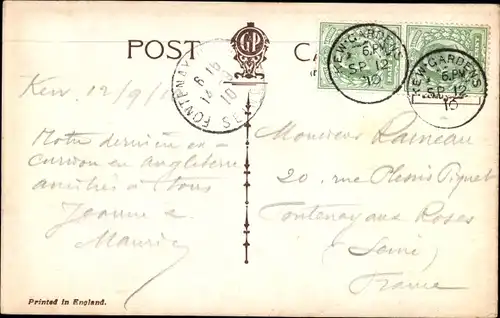 POST CA
GP
KEW·GARDENS
6.PM
SP 12
10
KEW·GARDENS
6.PM
SP 12
10
FONTENAY
Kew 12/9/10
Notre dernière ex-
cursion en Angleterre
amitiés à tous
Jeanne &
Maurice
Monsieur
20, rue Plessis Piquet
Fontenay aux Roses
(Seine)
France
Printed in England.